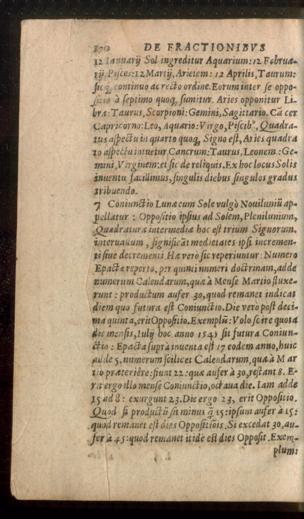 DE FRACTIONIBVS
12 Ianuarij Sol ingreditur Aquarium: 12 Februa-
rij, Pisces: 12 Martij, Arietem: 12 Aprilis, Taurum:
sicq́, continuo ac recto ordine. Eorum inter se oppo-
sitio à septimo quoq, sumitur. Aries opponitur Li-
bræ: Taurus, Scorpioni: Gemini, Sagittario. Cácer
Capricorno: Leo, Aquario: Virgo, Piscibꝰ, Quadra-
tus aspectu in quarto quoq, Signo est, Aries quadra
to aspectu intuetur Cancrum: Taurus, Leonem: Ge-
mini, Virginem: et sic de reliquis. Ex hoc locus Solis
inuentu facillimus, singulis diebus singulos gradus
tribuendo.
7 Coniunctio Lunæ cum Sole vulgò Nouiluniũ ap-
pellatur: Oppositio ipsius ad Solem, Plenilunium,
Quadratura intermedia hoc est trium Signorum,
interuallum, significãs medietates ipsi incremen-
ti siue decrementi Hæ verò sic reperiuntur: Numero
Epactæ reperto, per quinti numeri doctrinam, adde
numerum Calendarum, quæ à Mense Martio fluxe-
runt: productum aufer 30, quod remanet indicas
diem quo futura est Coniunctio. Die verò post deci-
ma quinta, erit Oppositio. Exempli: Volo scire quota
die mensis, Iulij hoc anno 1545 sit futura Coniun-
ctio: Epacta suprà inuenta est 17 eodem anno, huic
adde 5, numerum scilicet Calendarum, quæ à Mar
tio præteriêre: fiunt 22: quæ aufer à 30, restant 8. E-
rit ergo illo mense Coniunctio, octaua die. Iam adde
15 ad 8: exurgunt 23. Die ergo 23, erit Oppositio.
Quod si productũ sit minus q̃ 15: ipsum aufer à 15:
quod remanet est dies Oppositiõis. Si excedat 30, au-
fer à 45: quod remanet itidẽ est dies Opposit. Exem-
plum: